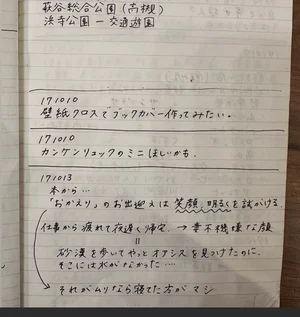 萩谷総合公園(高槻)
浜寺公園 ー 交通遊園
171010
壁紙クロスでブックカバー作ってみたい。
171010
カンケンリュックのミニほしいかも。
171013
本から…
「おかえり」のお出迎えは笑顔、明るくを心がける
仕事から疲れて夜遅く帰宅 → 妻不機嫌な顔
=
砂漠を歩いてやっとオアシスを見つけたのに、
そこには水がなかった…
それがムリなら寝てた方がマシ